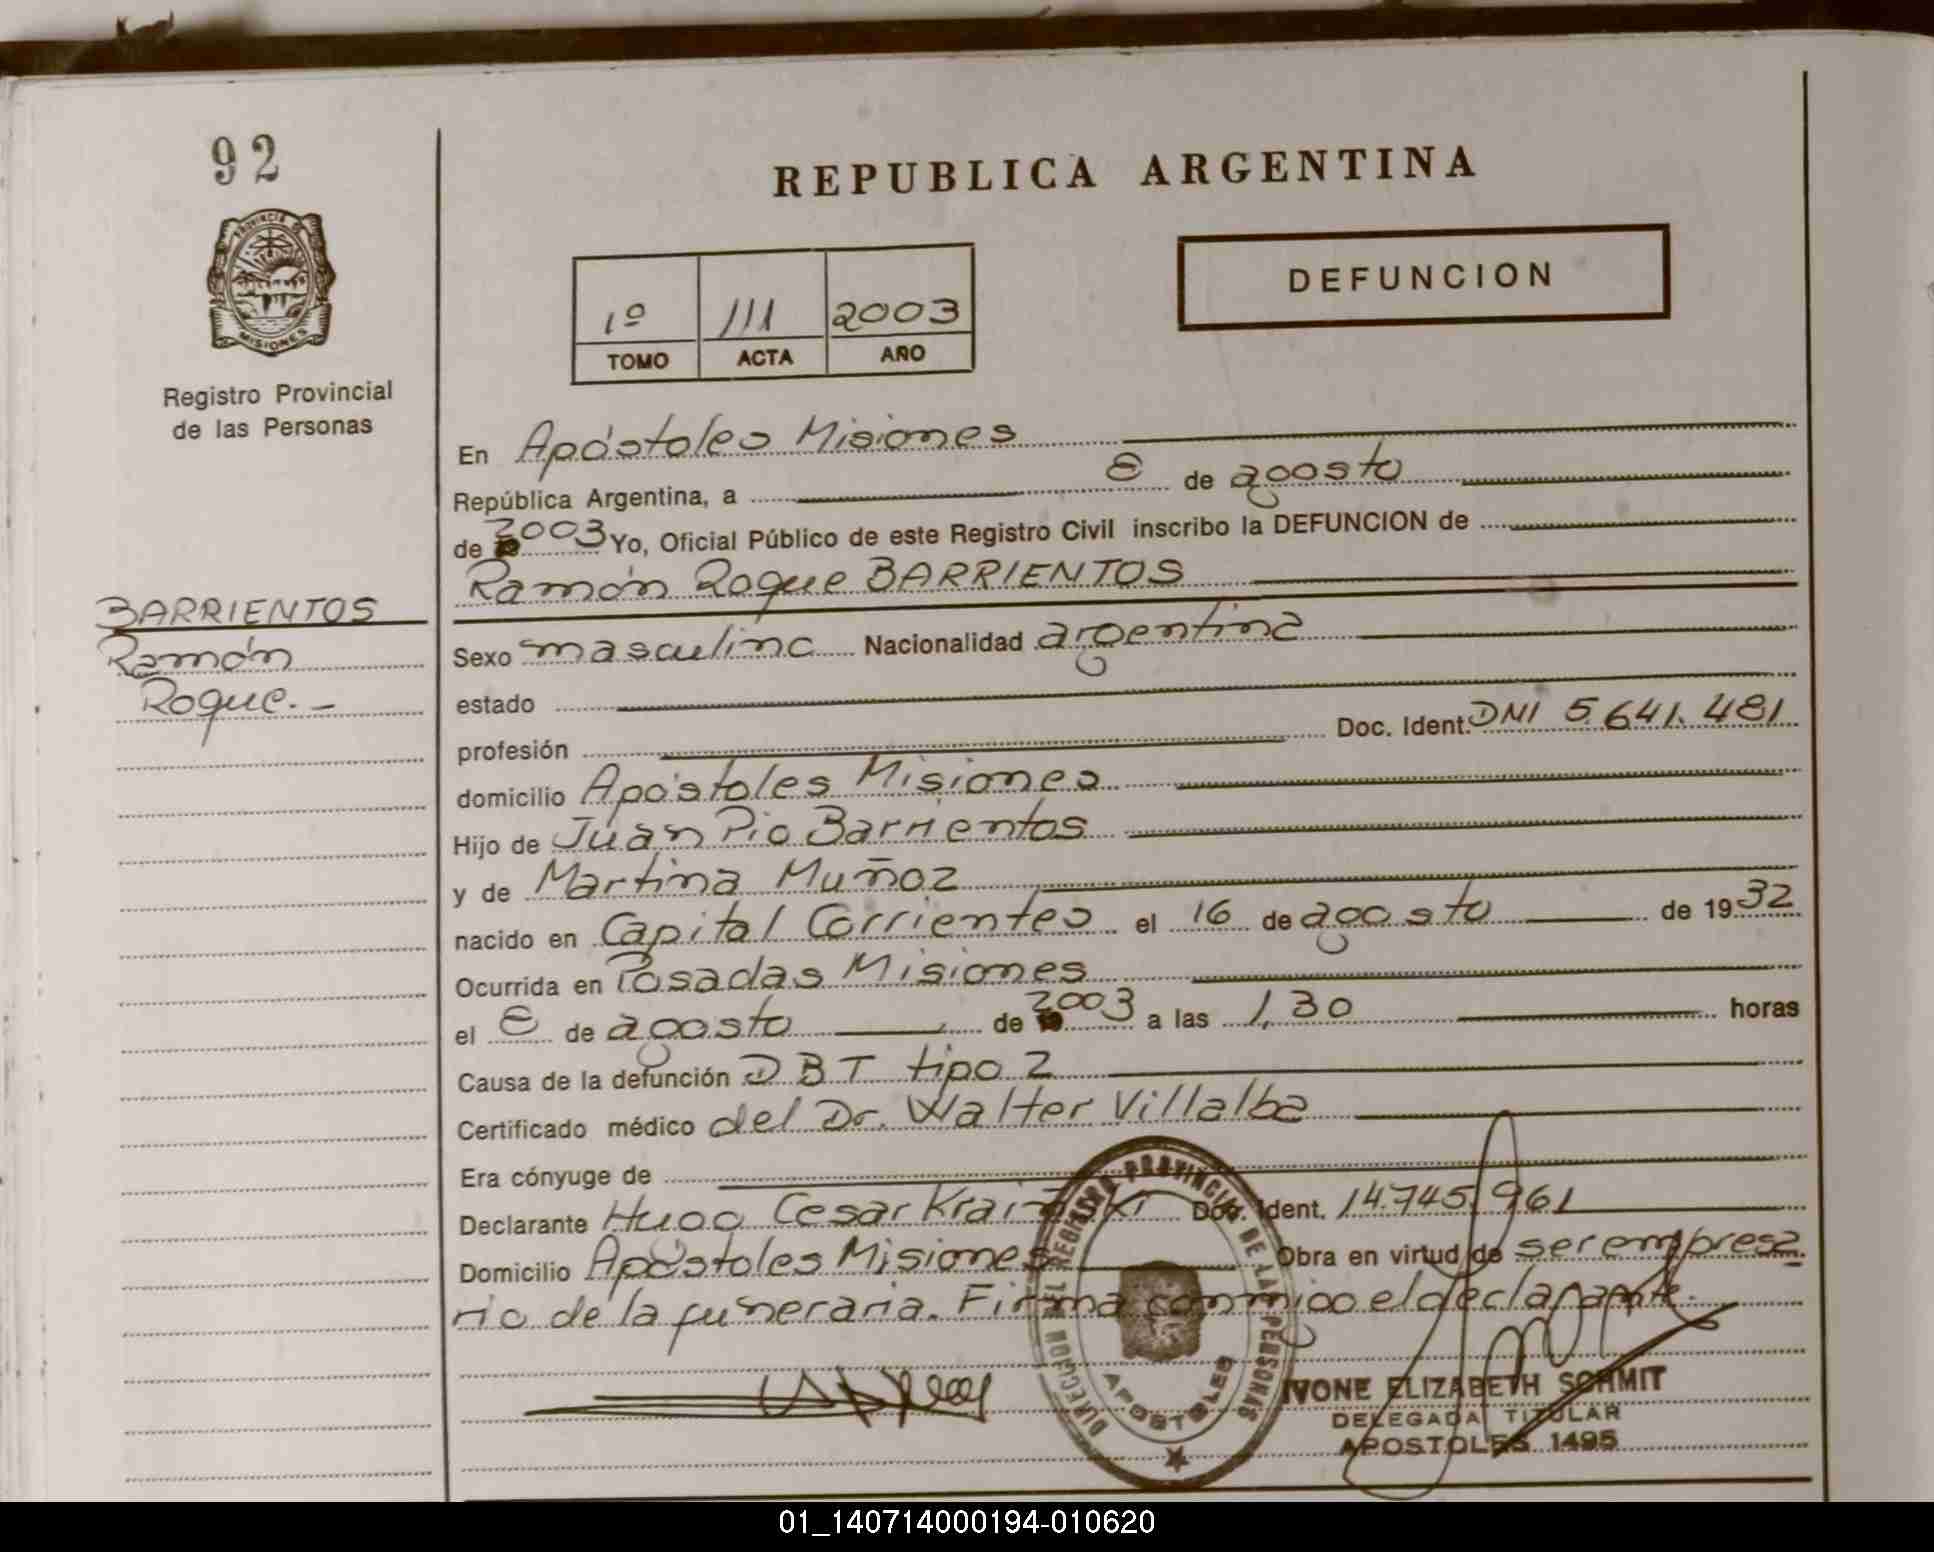 92
REPUBLICA ARGENTINA
PROVINCIA DE
MISIONES
Registro Provincial
de las Personas
1º 111 2003
TOMO ACTA AÑO
DEFUNCION
En Apóstoles Misiones
República Argentina, a 8 de agosto
de 2003 Yo, Oficial Público de este Registro Civil inscribo la DEFUNCION de
Ramón Roque BARRIENTOS
BARRIENTOS
Ramón
Roque.-
Sexo masculino Nacionalidad argentina
estado
profesión Doc. Ident. DNI 5.641.481
domicilio Apóstoles Misiones
Hijo de Juan Pio Barrientos
y de Martina Muñoz
nacido en Capital Corrientes el 16 de agosto de 1932
Ocurrida en Posadas Misiones
el 8 de agosto de 2003 a las 1,30 horas
Causa de la defunción DBT tipo 2
Certificado médico del Dr. Walter Villalba
Era cónyuge de
Declarante Hugo Cesar Doc. Ident. 14.745.961
Domicilio Apóstoles Misiones Obra en virtud de ser empresa
rio de la funeraria. Firma conmigo el declarante.
DIRECCION DEL REGISTRO PROVINCIAL DE LAS PERSONAS
APOSTOLES
IVONE ELIZABETH SCHMIT
DELEGADA TITULAR
APOSTOLES 1495
01_140714000194-010620